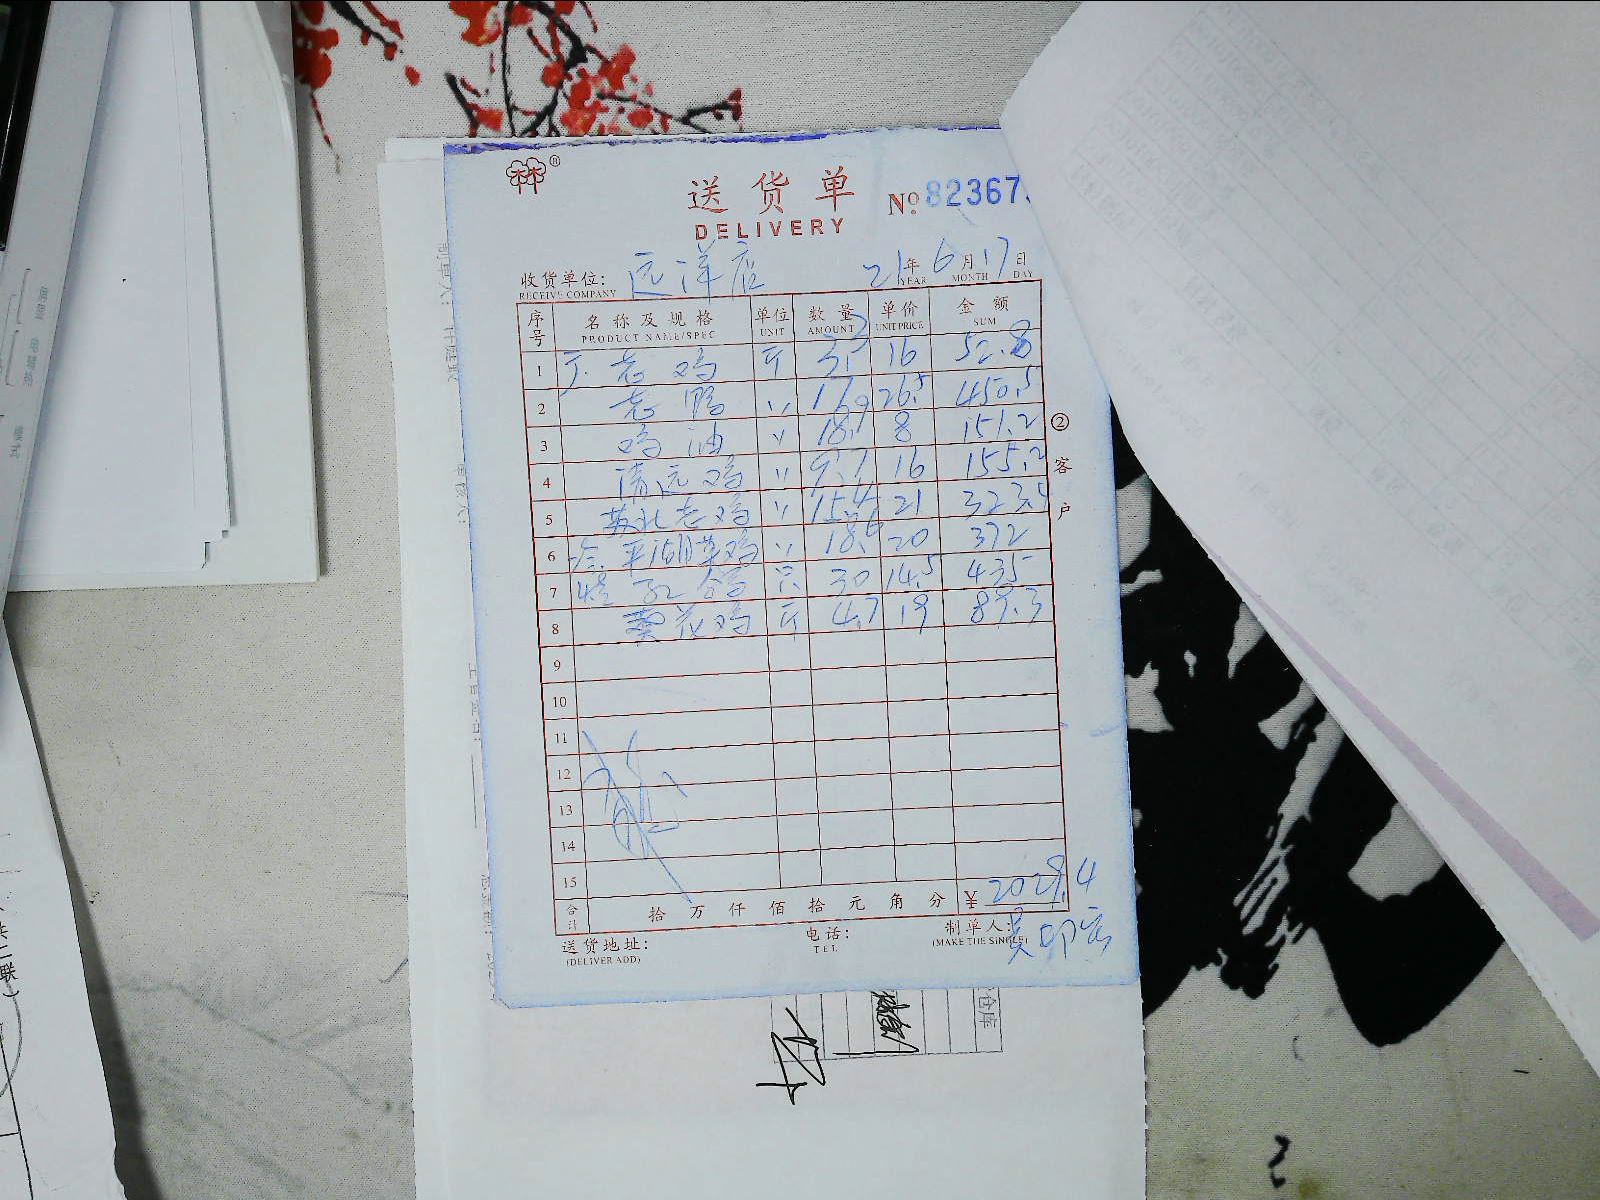 送货单
№ 82367
DELIVERY
收货单位: 远洋店 21年6月17日
RECEIVE COMPANY YEAR MONTH DAY
序号 名称及规格 单位 数量 单价 金额
PRODUCT NAME/SPEC UNIT AMOUNT UNIT PRICE SUM
1 老鸡 斤 3.3 16 52.8
2 老鸭 〃 17 26.5 450.5
3 鸡油 〃 18.9 8 151.2
4 清远鸡 〃 9.7 16 155.2
5 苏北老鸡 〃 15.4 21 323.4
6 平湖草鸡 〃 18.6 20 372
7 只 30 14.5 435
8 葵花鸡 斤 4.7 19 89.3
9
10
11
12
13
14
15
合计 拾 万 仟 佰 拾 元 角 分 ¥ 2029.4
送货地址: 电话: 制单人:
(DELIVER ADD) TEL (MAKE THE SINGLE)
② 客户
仓库